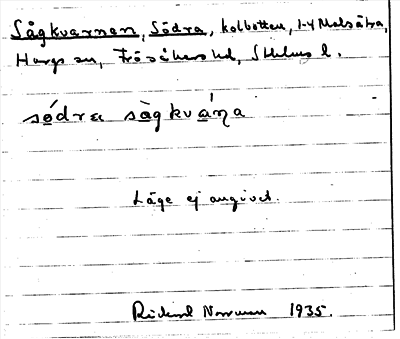 Sågkvarnen, Södra, kolbotten, 1-4 Malsätra,
Hargs sn, Frösåkers hd, Sthlms l.
södra sågkvaɳa
Läge ej angivet.
Rickard Norrman 1935.